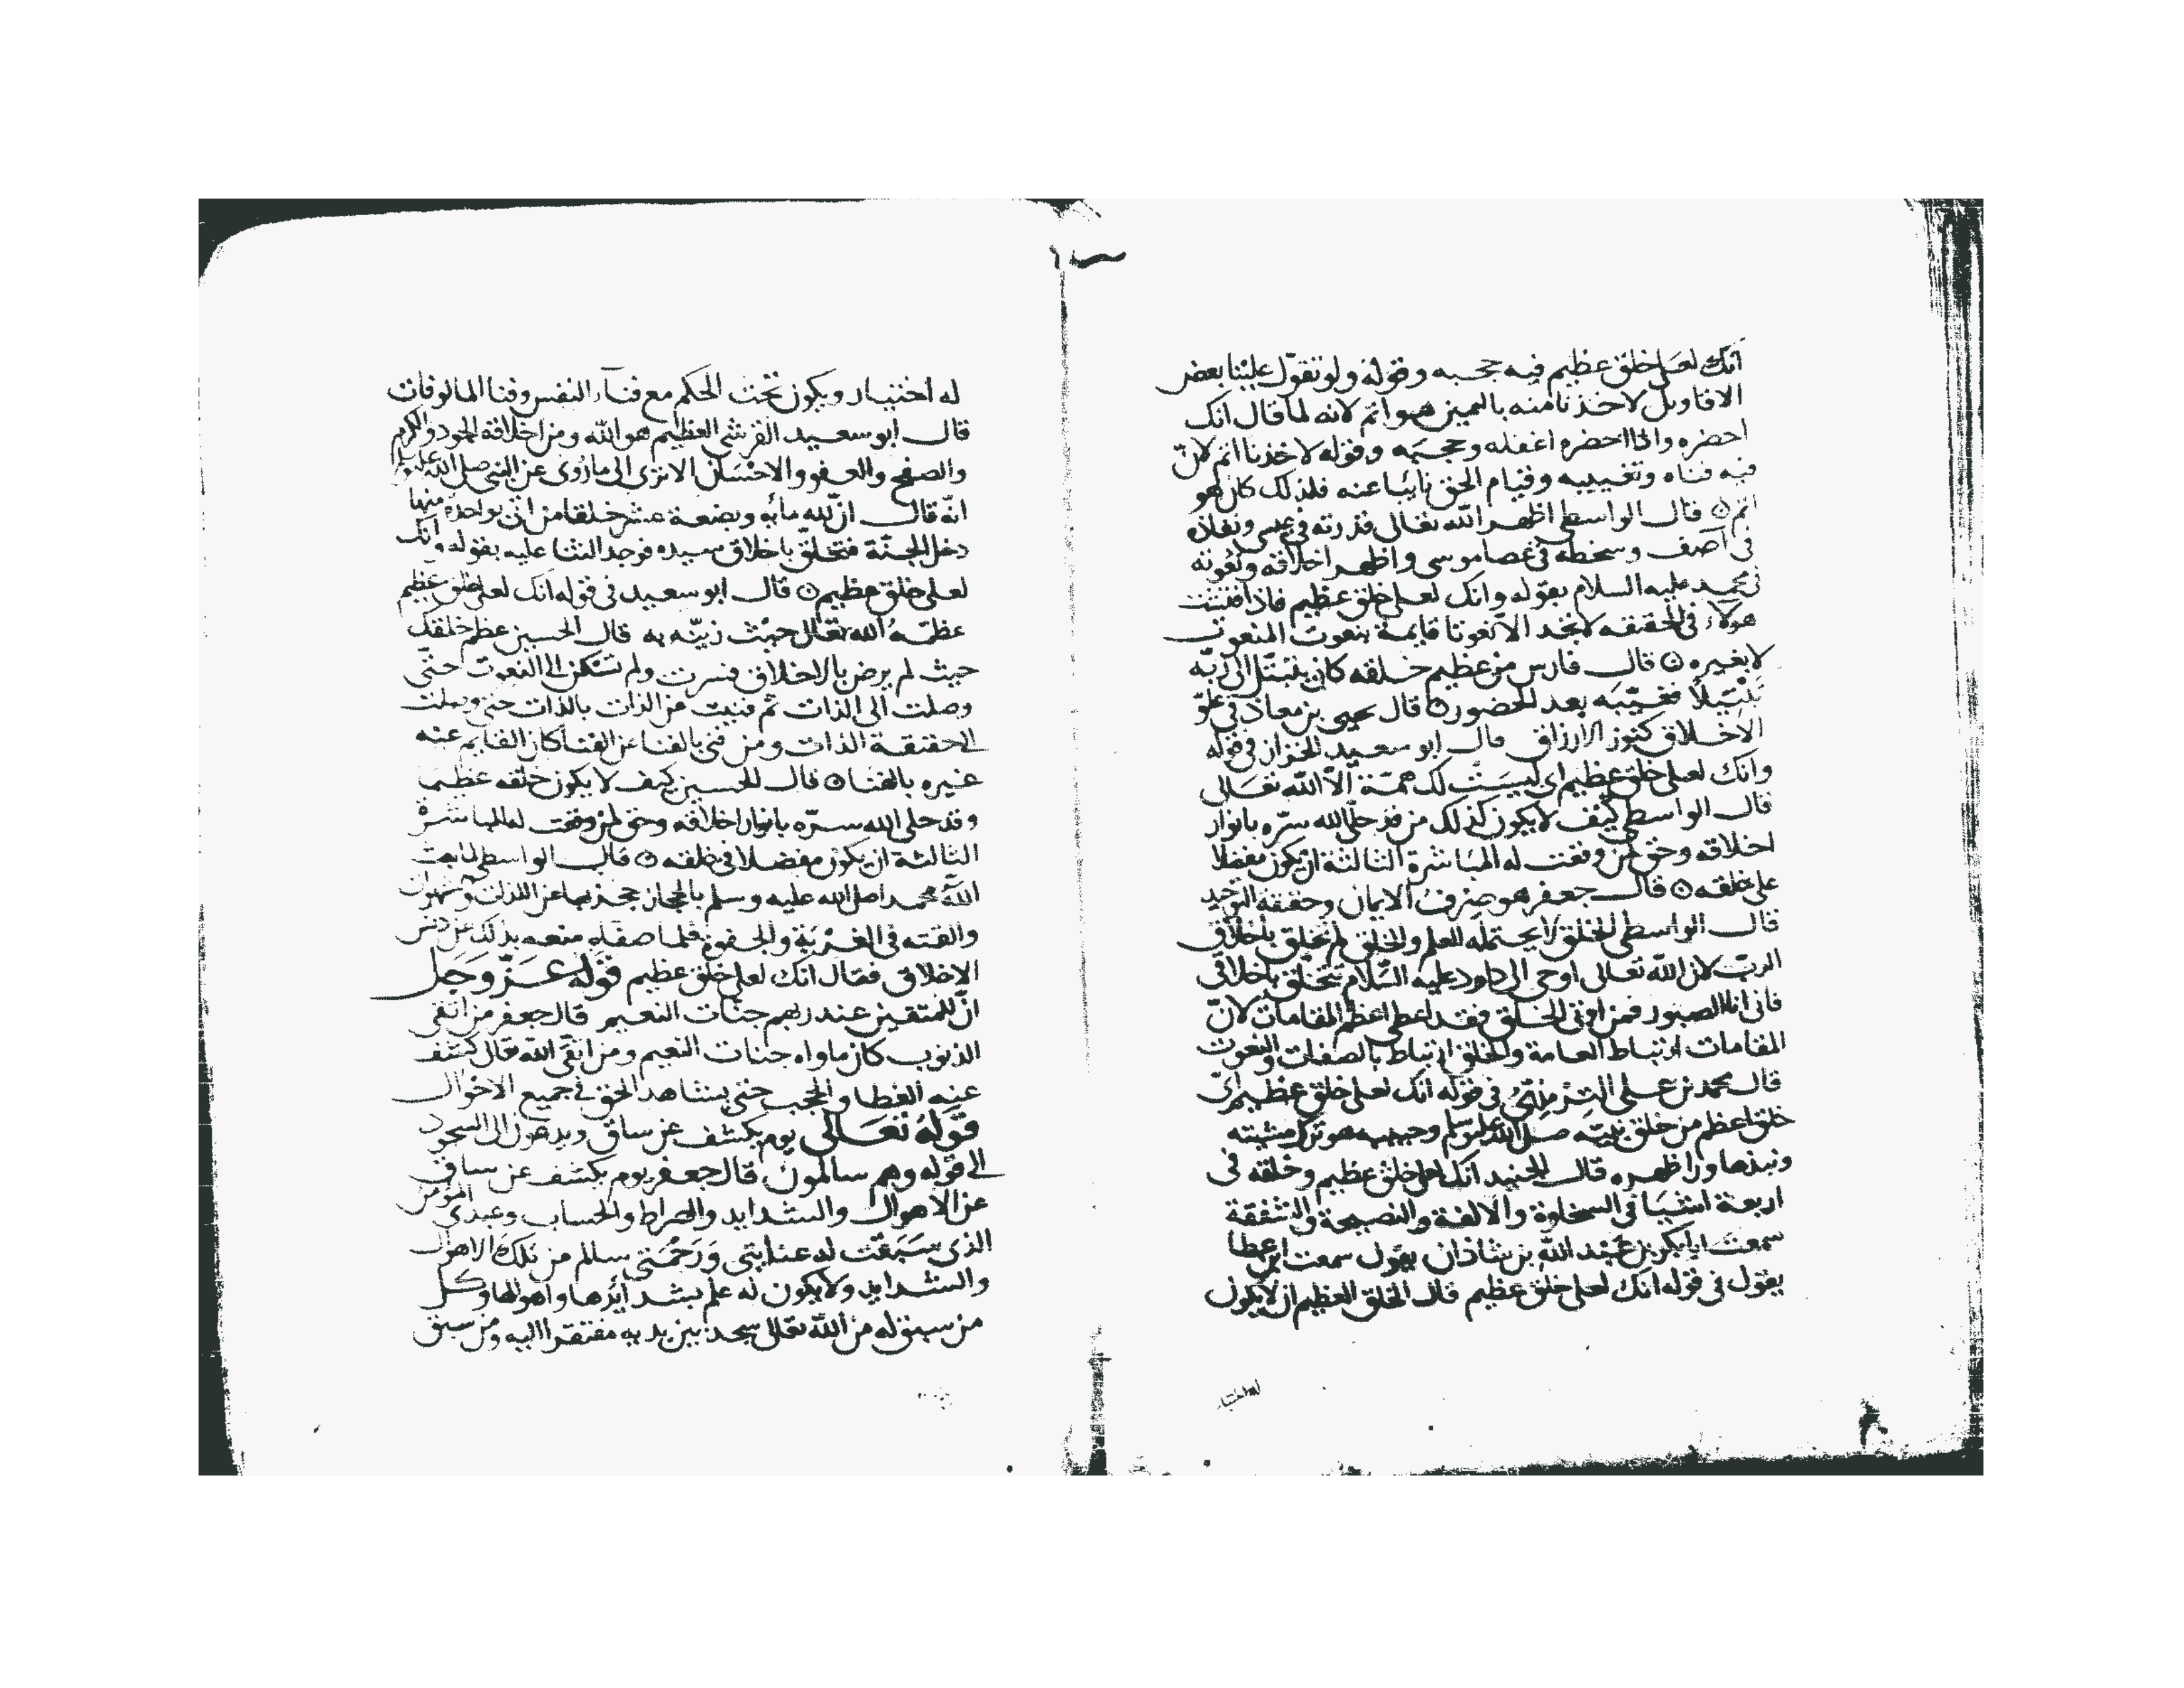 انك لعلى خلق عظيم فيه حجبه وقوله ولو تقوّل علينا بعض
الاقاويل لاخذنا منه باليمين هو اتم لانه لما قال انك
احضره واذا احضره اغفله وحجبه وقوله لاخذنا اتم لانّ
فيه فناه وتغييبه وقيام الحق نايبا عنه فلذلك كان هو
اتم ۞ قال الواسطى اظهر الله تعالى قدرته فى عيسى ونفاذه
فى آصف وسخطه فى عصا موسى واظهر اخلاقه ونعوته
فى محمد عليه السلام بقوله وانك لعلى خلق عظيم فاذا فتشت
هولاء فى الحقيقه لا تجد الا نعوتا قايمة بنعوت المنعوت
لا بغيره ۞ قال فارس من عظيم خلقه كان يتبتل الى ربّه
تبتيلا فغيّبه بعد الحضور ۞ قال يحيى بن معاذ فى علوّ
الاخلاق كنوز الارزاق قال ابو سعيد الخراز فى قوله
وانك لعلى خلق عظيم اى ليست لك همّة الّا الله تعالى
قال الواسطى كيف لا يكون كذلك من قد حلّى الله سرّه بانوار
اخلاقه وحق لمن وقعت له المباشرة الثالثة ان يكون مفضلا
على خلقه ۞ قال جعفر هو صرف الايمان وحقيقة التوحيد
قال الواسطى الخلق لا يحتمله العلم والخلق لم تخلق باخلاق
الربّ لان الله تعالى اوحى الى داود عليه السّلام تتخلّق باخلاقى
فانى انا الصبور فمن اوتى الخلق فقد اعطى اعظم المقامات لانّ
المقامات ارتباط العامة والخلق ارتباط بالصفات والنعوت
قال محمد بن على الترمذى فى قوله انك لعلى خلق عظيم اىّ
خلق اعظم من خلق نبيّه صلى الله عليه وسلم وحبيبه هو ترك مشيته
ونبذها ورا ظهره قال الجنيد انك لعلى خلق عظيم وخلقه فى
اربعة اشيا فى السخاوة والالفة والنصيحة والشفقة
سمعت ابا بكر بن عبد الله بن شاذان يقول سمعت ابن عطا
يقول فى قوله انك لعلى خلق عظيم قال الخلق العظيم ان لا يكون
له اختيار ويكون تحت الحكم مع فنآء النفس وفنا المالوفات
قال ابو سعيد القرشى العظيم هو الله ومن اخلاقه الجود والكرم
والصفح والعفو والاحسان الا ترى الى ما روى عن النبى صلى الله عليه وسلم
انه قال ان لله مايه وبضعة عشر خلقا من اتى بواحدة منها
دخل الجنّة فتخلّق باخلاق سيده فوجد الثنا عليه بقوله وانك
لعلى خلق عظيم ۞ قال ابو سعيد فى قوله انك لعلى خلق عظيم
عظّمهُ الله تعالى حيث زيّنه به قال الحسين عظم خلقك
حيث لم يرض بالاخلاق فسرت ولم تسكن الى النعوت حتّى
وصلت الى الذات ثم فنيت عن الذات بالذات حتى وصلت
الى حقيقة الذات ومن فنى بالفنا عن الفنا كان القايم عنه
غيره بالفنا ۞ قال الحسين كيف لا يكون خلقه عظيما
وقد حلى الله سرّه بانوار اخلاقه وحق لمن وقعت له المباشرة
الثالثة ان يكون مفضلا فى خلقه ۞ قال الواسطى لما بعث
الله محمدا صلى الله عليه وسلم بالحجاز حجزه بها عن اللذات وشهوات
والقته فى الغربة والجفوة فلما صفاه منعه بذلك عن دنس
الاخلاق فقال انك لعلى خلق عظيم قوله عزّ وجل
انّ للمتقين عند ربهم جنات النعيم قال جعفر من اتقى
الذنوب كان ماواه جنات النعيم ومن اتقى الله تعالى كشف
عنه الغطا والحجب حتى يشاهد الحق فى جميع الاحوال
قوله تعالى يوم يكشف عن ساق ويدعون الى السجود
الى قوله وهم سالمون قال جعفر يوم يكشف عن ساق
عن الاهوال والشدايد والصراط والحساب وعبدى المؤمن
الذى سبقت له عنايتى ورحمتى سالم من تلك الاهوال
والشدايد ولا يكون له علم بشدايدها واهوالها وكل
من سبق له من الله تعالى سجد بين يديه مفتقرا اليه ومن سبق